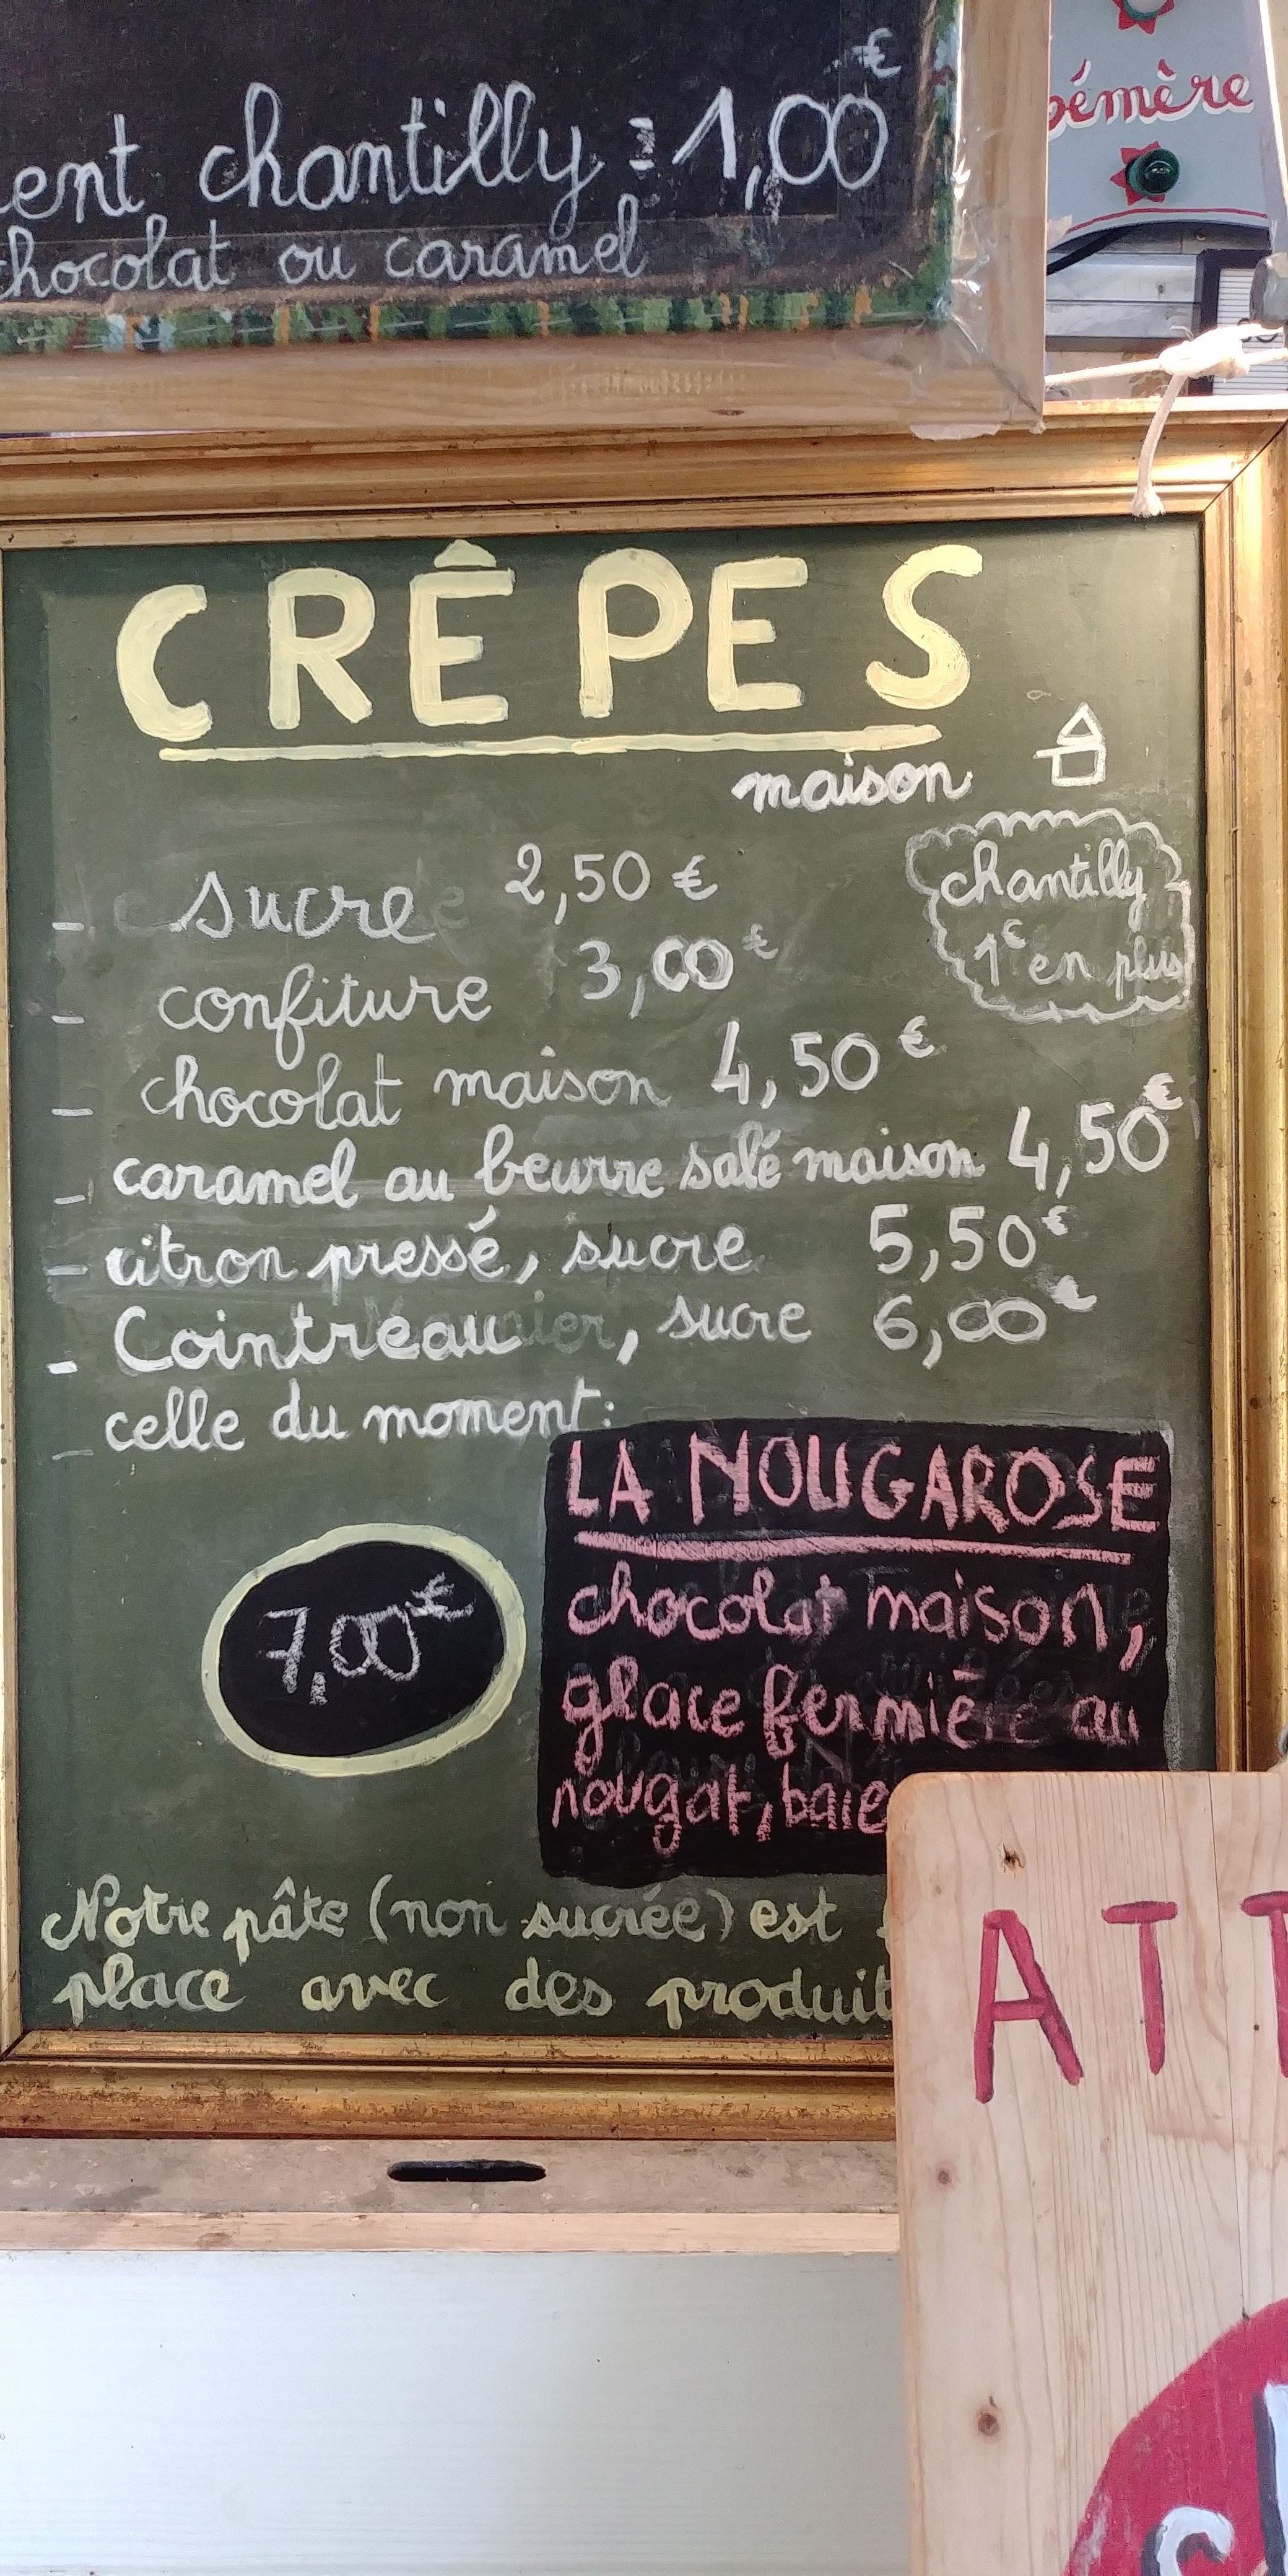 chantilly : 1,00 €
chocolat ou caramel
CRÊPES
maison
chantilly
1€ en plus
- sucre 2,50 €
- confiture 3,00 €
- chocolat maison 4,50 €
- caramel au beurre salé maison 4,50 €
- citron pressé, sucre 5,50 €
- Cointreau, sucre 6,00 €
- celle du moment:
LA NOUGAROSE
7,00 €
chocolat maison,
glace fermière au
nougat, baie
Notre pâte (non sucrée) est
place avec des produit
ATT